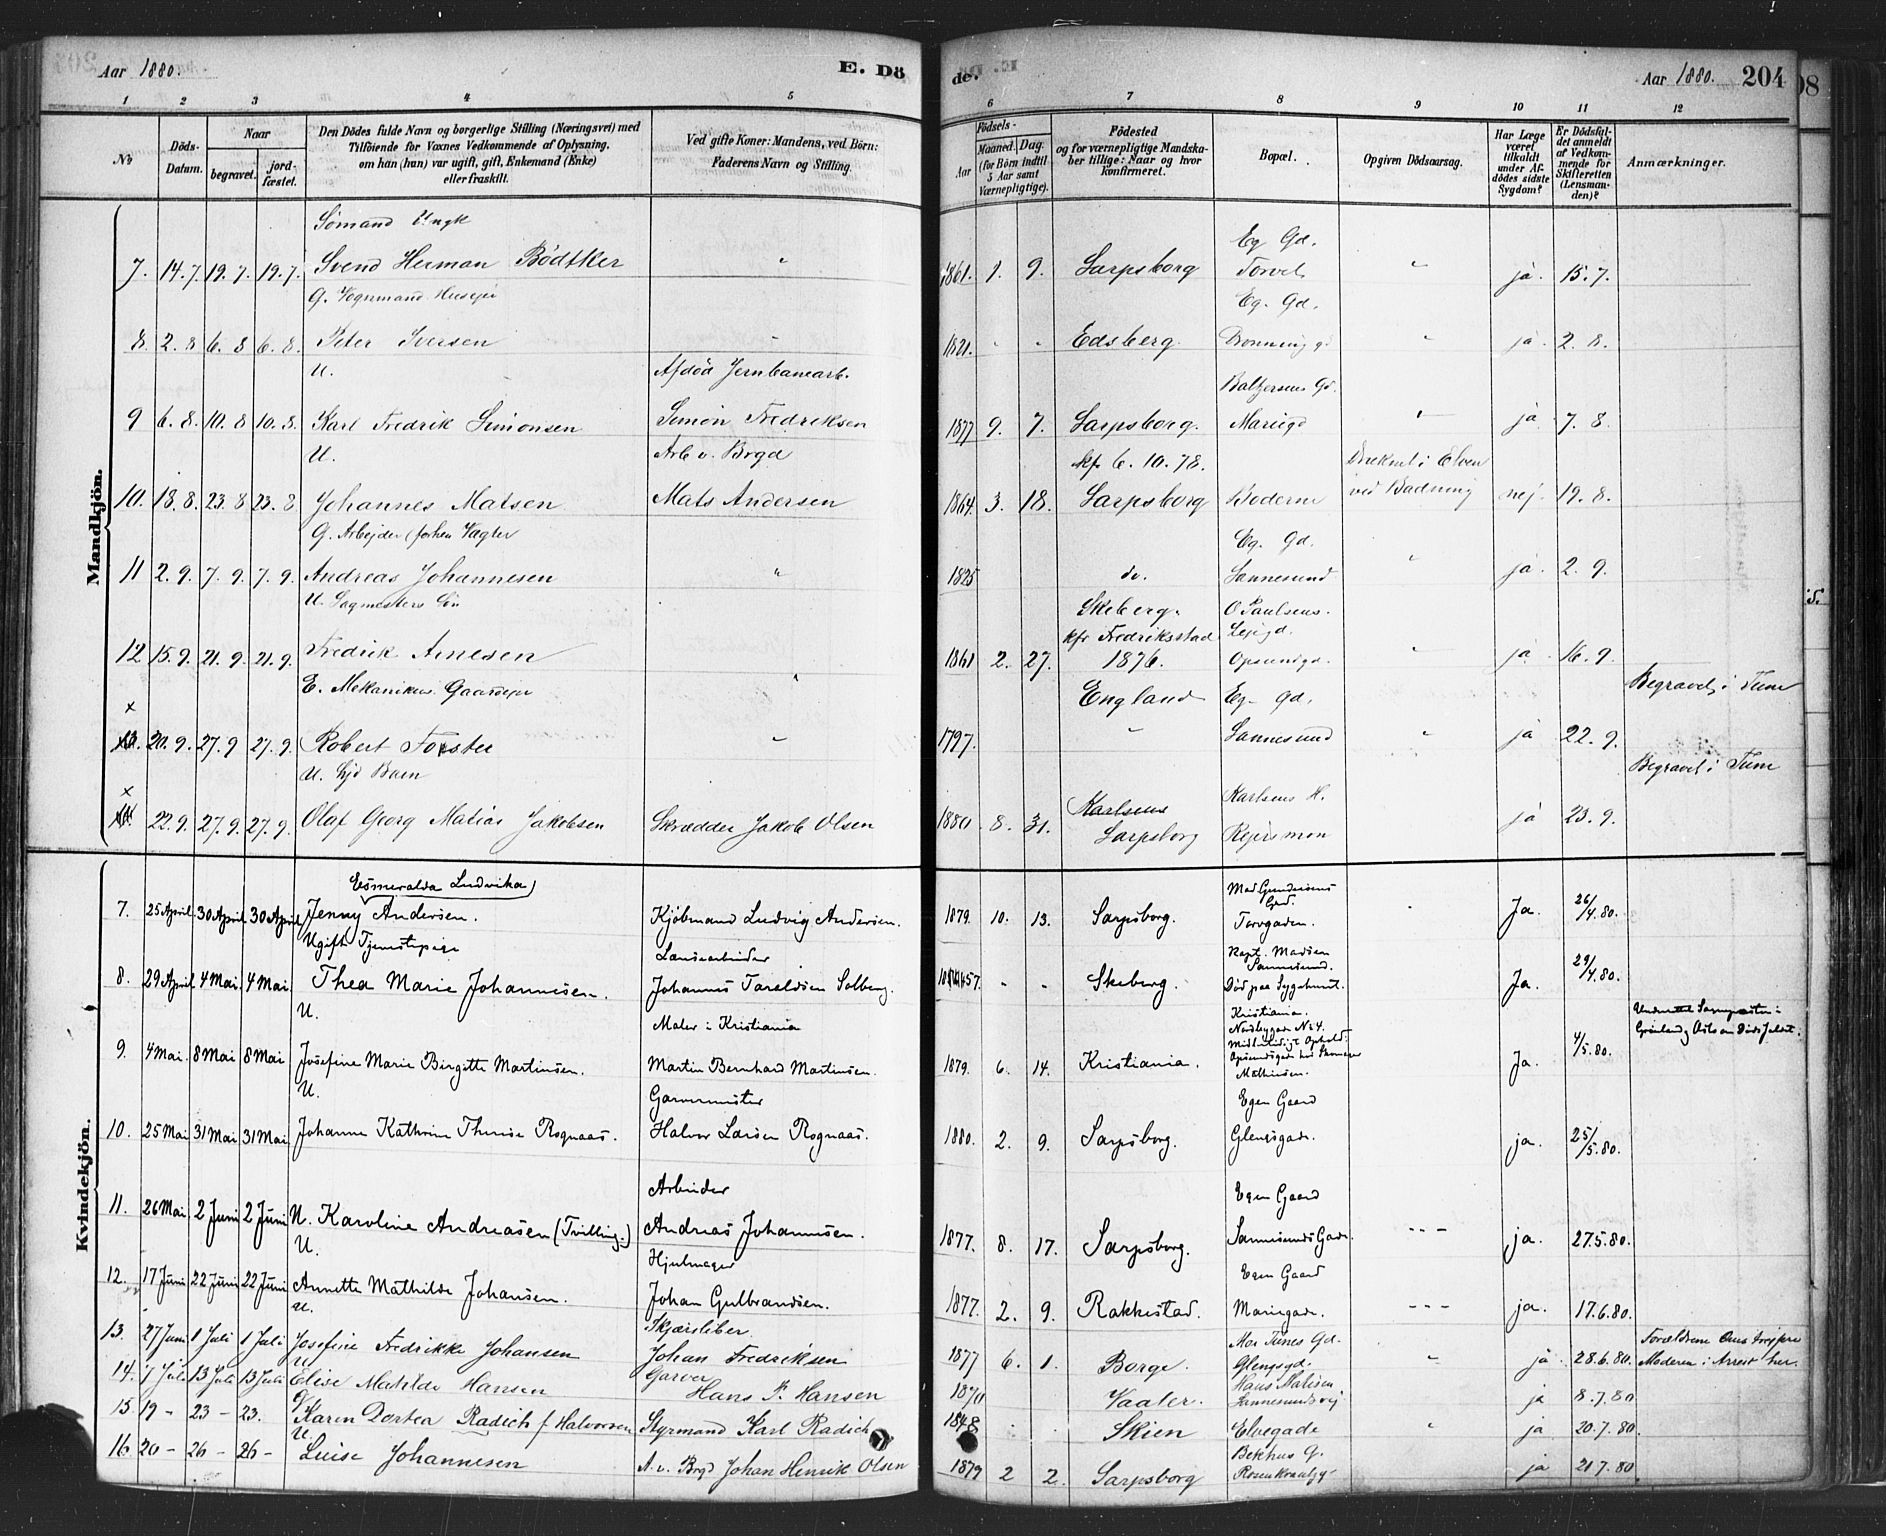 Aar 1880.
E. Dö
de.
Aar 1880.
204
1 2 3 4 5 6 7 8 9 10 11 12
No
Döds-Datum.
Naar
begravet.
jordfæstet.
Den Dödes fulde Navn og borgerlige Stilling (Næringsvei) med
Tilföiende for Voxnes Vedkommende af Oplysning,
om han (hun) var ugift, gift, Enkemand (Enke)
eller fraskilt.
Ved gifte Koner: Mandens, ved Börn:
Faderens Navn og Stilling.
Födsels-
Aar
Maaned.
Dag.
(for Börn indtil
5 Aar samt
Værnepligtige).
Födested
og for værnepligtige Mandskaber
tillige: Naar og hvor
konfirmeret.
Bopæl.
Opgiven Dödsaarsag.
Har Læge
været
tilkaldt
under Afdödes
sidste
Sygdom?
Er Dödsfaldet
anmeldt
af Vedkommende
for
Skifteretten
(Lensmanden)?
Anmærkninger.
Mandkjön.
Sömand Ungk
Eg Gd.
7. 14.7. 19.7. 19.7. Svend Herman Bödtker " 1861. 1. 9. Sarpsborg Torvet " ja. 15.7.
G. Vognmand Huseier
Eg. Gd.
8. 2.8 6.8 6.8. Peter Iversen " 1821. " " Edsberg. Dronning gd " ja. 2.8.
U. Afdöd Jernbanearb. Baltzersens Gd.
9 6.8. 10.8 10.8. Karl Fredrik Simonsen Simon Fredriksen 1877 9. 7. Sarpsborg. Mariegd " ja 7.8.
U. Arb v. Brgd kfr 6.10.78. Druknet i Elven
10. 18.8. 23.8 23.8 Johannes Matsen Mats Andersen 1864. 3. 18. Sarpsborg Boderne ved Badning nej. 19.8.
G. Arbejder (forhen Vægter Eg. Gd.
11 2.9. 7.9. 7.9. Andreas Johannesen " 1825 do. Sannesund " ja. 2.9.
U. Sagmesters Sön Skeberg. O Paulsens.
kfr Fredriksstad Lejegd.
12 15.9. 21.9. 21.9. Fredrik Arnesen 1861 2. 27. 1876. Opsundgd. " ja 16.9.
E. Mekanikus Gaardejer " England Eg Gd. Begravet i Tune
x
13. 20.9. 27.9 27.9. Robert Forster " 1797. " Sannesund " ja 22.9.
U. Barn Begravet i Tune
x Karlsens H.
14. 22.9. 27.9. 27.9. Olaf Georg Matias Jakobsen Skrædder Jakob Olsen 1880 8. 31. Karlsens Sarpsborg Rejersmon ja 23.9.
Kvindekjön.
Esmeralda Ludvika) Mad Gundersens Grd.
7. 25 April. 30 April 30 April Jenny Andersen. Kjöbmand Ludvig Andersen. 1879. 10. 13. Sarpsborg. Torvgaden. Ja. 26/4.80.
Ugift Tjenestepige Landarbeider Kapt. Madsen Sannesund.
8. 29 April 4 Mai 4 Mai Thea Marie Johannesen. Johannes Taraldsen Solberg. 1857. - - Skeberg. Död paa Sygehuset. Ja. 29/4.80.
U. Maler i Kristiania Kristiania. Nordbygade No 4.
Grönland
9. 4 Mai. 8 Mai 8 Mai Josefine Marie Birgette Martinsen. Martin Bernhard Martinsen. 1879. 6. 14. Kristiania. Midlertidigt Ophold: Opsundgaden hos Mathisen. Ja. 4/5.80.
U. Garvermester Egen Gaard
10. 25 Mai 31 Mai 31 Mai Johanne Kathrine Therese Rognaas. Halvor Larsen Rognaas. 1880. 2. 9. Sarpsborg. Glengsgade. ja. 25/5.80.
Arbeider Egen Gaard
11. 26 Mai. 2 Juni 2 Juni U. Karoline Andreasen (Tvilling.) Andreas Johannesen. 1877. 8. 17. Sarpsborg. Sannesunds Gade. - - - ja. 27.5.80.
U. Hjulmager Egen Gaard
12. 17 Juni 22 Juni 22 Juni Annette Mathilde Johansen. Johan Gulbrandsen. 1877. 2. 9. Rakkestad. Mariegade. - - - ja. 17.6.80.
U. Skjærsliber. Mor Tunes Gd.
13. 27 Juni 1 Juli 1 Juli Josefine Fredrikke Johansen Johan Fredriksen 1877 6. 1. Borge. Glengsgd. " ja 28.6.80. Forældrene Omstrejfere Moderen i Arrest her.
U Garver Hans Matisen
14. 7 Juli 13 Juli 13 Juli Elise Matilde Hansen Hans P. Hansen 1870 Vaaler. Sannesundsvej ja 8.7.80
G
15 19 - 23 - 23. Karen Dortea Radich f Halvorsen Styrmand Karl Radich 1848 Skien Elvegade " ja 20.7.80.
U. Bekhus G.
16. 20 - 26 - 26 - Luise Johannesen A. v. Brgd Johan Henrik Olsen 1879 2 2. Sarpsborg Rosenkrantzg ja 21.7.80